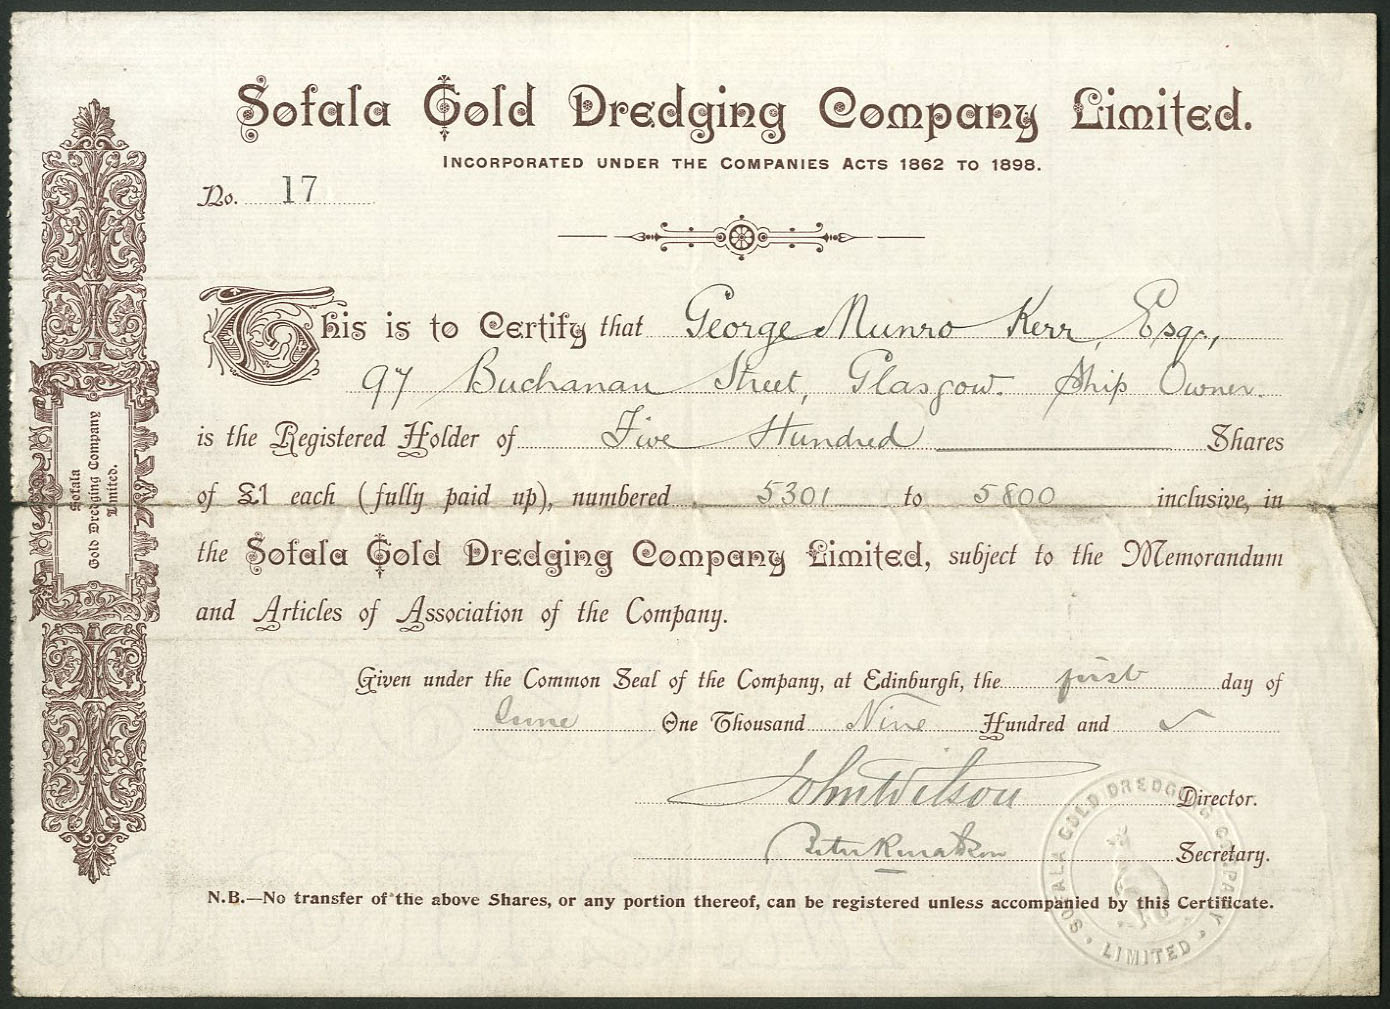 Sofala Gold Dredging Company Limited.
INCORPORATED UNDER THE COMPANIES ACTS 1862 TO 1898.
No. 17
This is to Certify that George Munro Kerr, Esqr,
97 Buchanan Street, Glasgow. Ship Owner.
is the Registered Holder of Five Hundred Shares
of £1 each (fully paid up), numbered 5301 to 5800 inclusive, in
the Sofala Gold Dredging Company Limited, subject to the Memorandum
and Articles of Association of the Company.
Given under the Common Seal of the Company, at Edinburgh, the first day of
June One Thousand Nine Hundred and
John Wilson Director.
Peter Secretary.
N.B.—No transfer of the above Shares, or any portion thereof, can be registered unless accompanied by this Certificate.
Sofala
Gold Dredging Company
Limited.
SOFALA GOLD DREDGING COMPANY
LIMITED